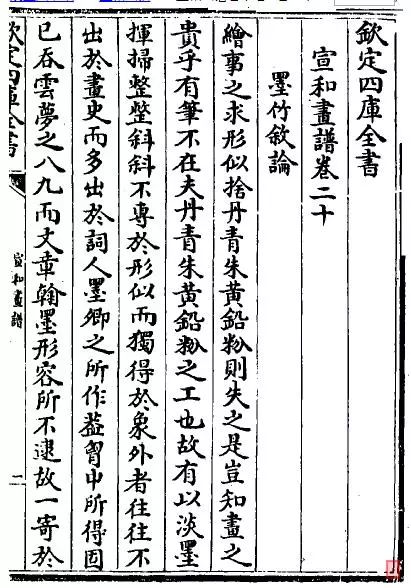 欽定四庫全書
宣和畫譜卷二十
墨竹敘論
繪事之求形似捨丹青朱黃鉛粉則失之是豈知畫之
貴乎有筆不在夫丹青朱黃鉛粉之工也故有以淡墨
揮掃整整斜斜不專於形似而獨得於象外者往往不
出於畫史而多出於詞人墨卿之所作葢胷中所得固
已吞雲夢之八九而文章翰墨形容所不逮故一寄於
欽定四庫全書
宣和畫譜
一